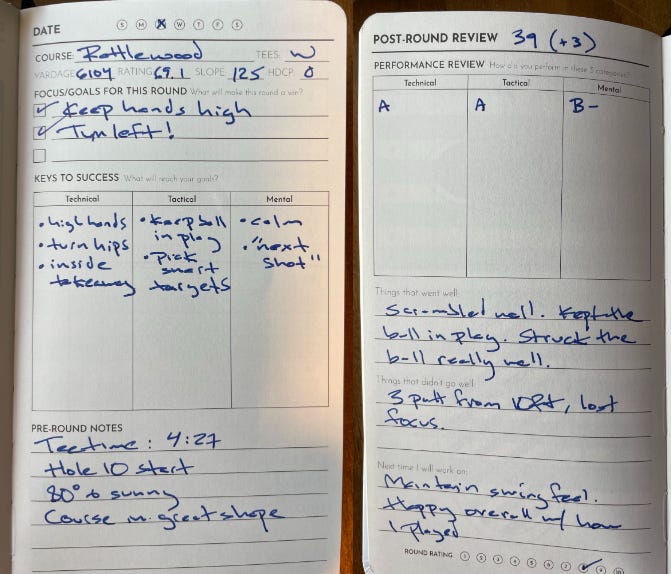 DATE S M T W T F S
COURSE: Rattlewood TEES: W
YARDAGE 6104 RATING 69.1 SLOPE 125 HDCP 0
FOCUS/GOALS FOR THIS ROUND What will make this round a win?
Keep hands high
Turn left!
KEYS TO SUCCESS What will reach your goals?
Technical Tactical Mental
• high hands
• turn hips
• inside
takeaway
• Keep ball
in play
• Pick
smart
targets
• calm
• "next
shot"
PRE-ROUND NOTES
Tee time: 4:27
Hole 10 start
80° & sunny
Course in great shape
POST-ROUND REVIEW 39 (+3)
PERFORMANCE REVIEW How did you perform in these 3 categories?
Technical Tactical Mental
A A B-
Things that went well:
Scrambled well. Kept the
ball in play. Struck the
ball really well.
Things that didn't go well:
3 putt from 10ft, lost
focus.
Next time I will work on:
Maintain swing feel.
Happy overall w/ how
I played
ROUND RATING 1 2 3 4 5 6 7 9 10